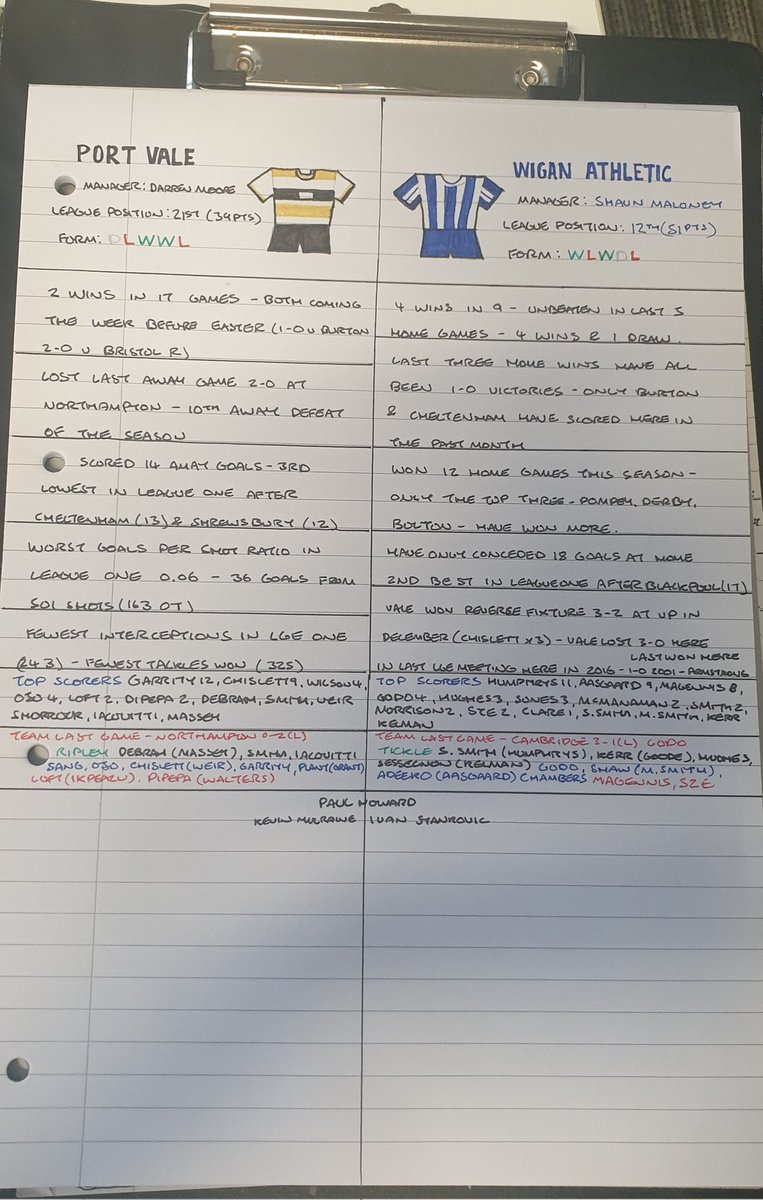 PORT VALE
MANAGER: DARREN MOORE
LEAGUE POSITION: 21ST (39PTS)
FORM: DLWWL
2 WINS IN 17 GAMES - BOTH COMING
THE WEEK BEFORE EASTER (1-0 V BURTON
2-0 V BRISTOL R)
LOST LAST AWAY GAME 2-0 AT
NORTHAMPTON - 10TH AWAY DEFEAT
OF THE SEASON
SCORED 14 AWAY GOALS - 3RD
LOWEST IN LEAGUE ONE AFTER
CHELTENHAM (13) & SHREWSBURY (12)
WORST GOALS PER SHOT RATIO IN
LEAGUE ONE 0.06 - 36 GOALS FROM
501 SHOTS (163 OT)
FEWEST INTERCEPTIONS IN LGE ONE
(243) - FEWEST TACKLES WON (325)
TOP SCORERS GARRITY 12, CHISLETT 9, WILSON 4,
OJO 4, LOFT 2, DIPEPA 2, DEBRAH, SMITH, WEIR
SHORROCK, IACOVITTI, MASSEY
TEAM LAST GAME - NORTHAMPTON 0-2 (L)
RIPLEY DEBRAH (MASSEY), SMITH, IACOVITTI
SANG, OJO, CHISLETT (WEIR), GARRITY, PLANT (GRANT)
LOFT (IKPEAZU), DIPEPA (WALTERS)
WIGAN ATHLETIC
MANAGER: SHAUN MALONEY
LEAGUE POSITION: 12TH (51PTS)
FORM: WLWDL
4 WINS IN 9 - UNBEATEN IN LAST 5
HOME GAMES - 4 WINS & 1 DRAW.
LAST THREE HOME WINS HAVE ALL
BEEN 1-0 VICTORIES - ONLY BURTON
& CHELTENHAM HAVE SCORED HERE IN
THE PAST MONTH
WON 12 HOME GAMES THIS SEASON -
ONLY THE TOP THREE - POMPEY, DERBY,
BOLTON - HAVE WON MORE.
HAVE ONLY CONCEDED 18 GOALS AT HOME
2ND BEST IN LEAGUE ONE AFTER BLACKPOOL (17)
VALE WON REVERSE FIXTURE 3-2 AT VP IN
DECEMBER (CHISLETT x3) - VALE LOST 3-0 HERE
LAST WON HERE
IN LAST LGE MEETING HERE IN 2016 - 1-0 2001 - ARMSTRONG
TOP SCORERS HUMPHRYS 11, AASGAARD 9, MAGENNIS 8,
GODO 4, HUGHES 3, JONES 3, MCMANAMAN 2, SMITH 2,
MORRISON 2, SZE 2, CLARE 1, S.SMITH, M.SMITH, KERR
KELMAN
TEAM LAST GAME - CAMBRIDGE 3-1 (L) GODO
TICKLE S. SMITH (HUMPHRYS), KERR (GOODE), HUGHES,
SESSEGNON (KELMAN) GODO, SHAW (M.SMITH),
ADEEKO (AASGAARD) CHAMBERS MAGENNIS, SZE
PAUL HOWARD
KEVIN MULRAINE IVAN STANKOVIC